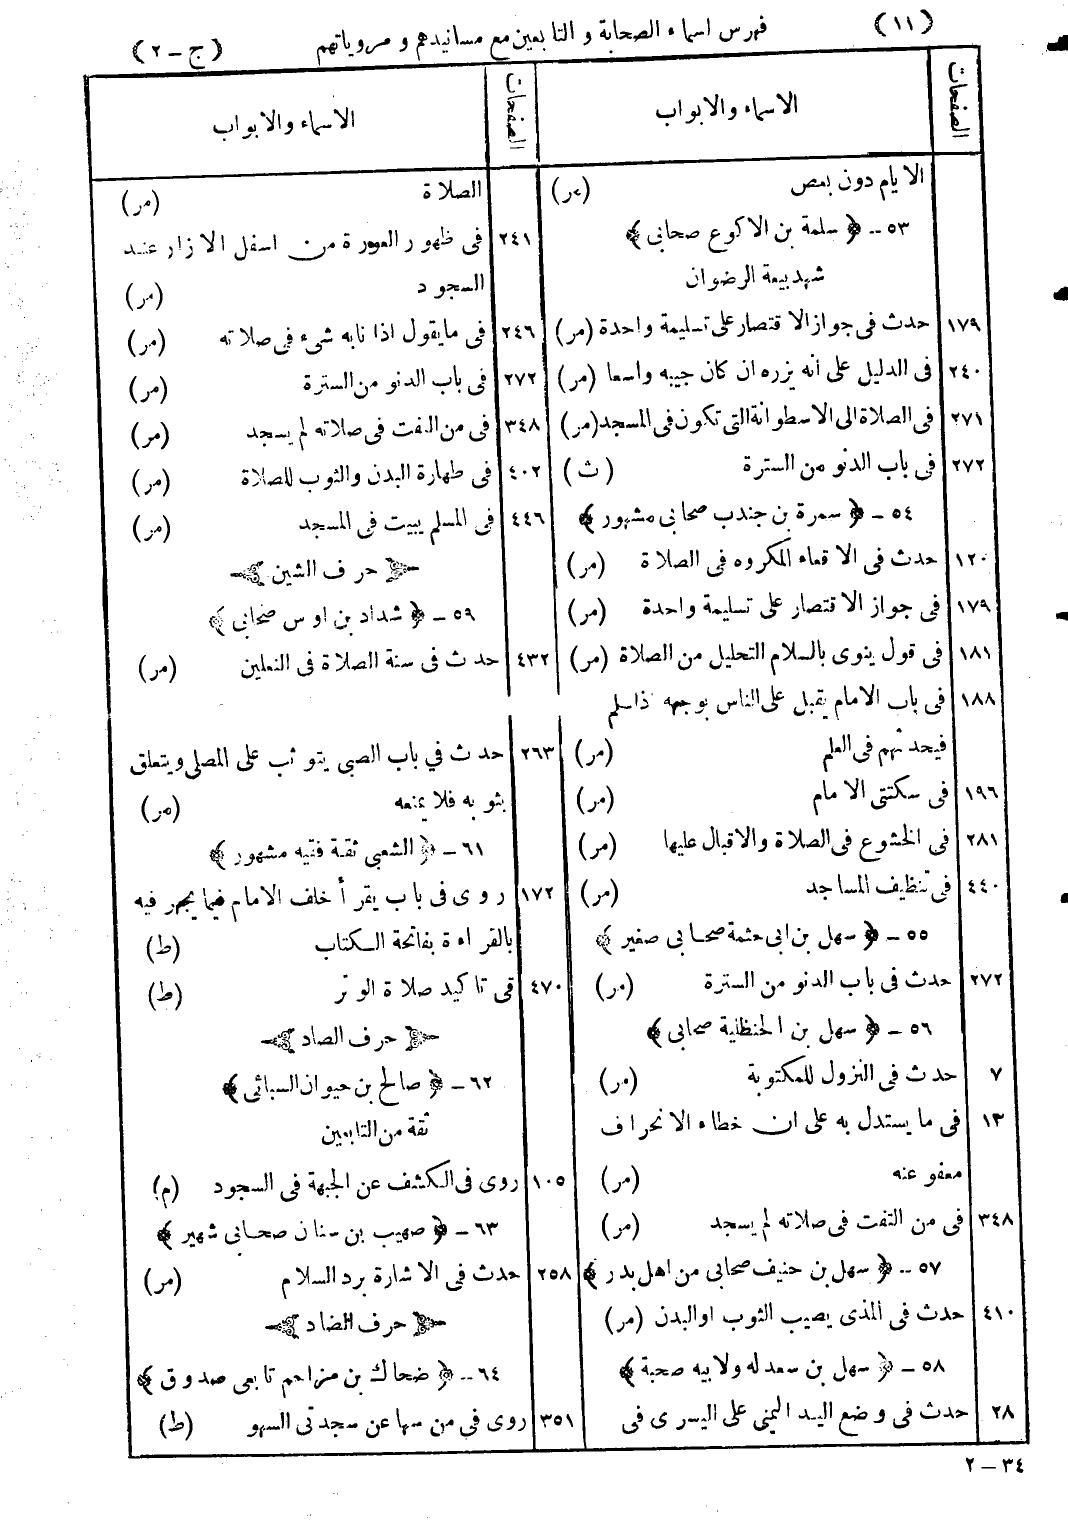 (١١)
فهرس اسماء الصحابة و التابعين مع مسانيدهم و مروياتهم
(ج - ٢)
الصفحات
الاسماء والابواب
الايام دون بعض (مر)
٥٣ - ﴿ سلمة بن الاكوع صحابى ﴾
شهد بيعة الرضوان
١٧٩ حدث فى جواز الاقتصار على تسليمة واحدة (مر)
٢٤٠ فى الدليل على انه يزره ان كان جيبه واسعا (مر)
٢٧١ فى الصلاة الى الاسطوانة التى تكون فى المسجد (مر)
٢٧٢ فى باب الدنو من السترة (ث)
٥٤ - ﴿ سمرة بن جندب صحابى مشهور ﴾
١٢٠ حدث فى الاقعاء المكروه فى الصلاة (مر)
١٧٩ فى جواز الاقتصار على تسليمة واحدة (مر)
١٨١ فى قول ينوى بالسلام التحليل من الصلاة (مر)
١٨٨ فى باب الامام يقبل على الناس بوجهه ذا سلم
فيحدثهم فى العلم (مر)
١٩٦ فى سكتتى الامام (مر)
٢٨١ فى الخشوع فى الصلاة والاقبال عليها (مر)
٤٤٠ فى تنظيف المساجد (مر)
٥٥ - ﴿ سهل بن ابى حثمة صحابى صغير ﴾
٢٧٢ حدث فى باب الدنو من السترة (مر)
٥٦ - ﴿ سهل بن الحنظلية صحابى ﴾
٧ حدث فى النزول للمكتوبة (مر)
١٣ فى ما يستدل به على ان خطاء الانحراف
معفو عنه (مر)
٣٤٨ فى من التفت فى صلاته لم يسجد (مر)
٥٧ - ﴿ سهل بن حنيف صحابى من اهل بدر ﴾
٤١٠ حدث فى المذى يصيب الثوب او البدن (مر)
٥٨ - ﴿ سهل بن سعد له ولابيه صحبة ﴾
٢٨ حدث فى وضع اليد اليمنى على اليسرى فى
الصفحات
الاسماء والابواب
الصلاة (مر)
٢٤١ فى ظهور العورة من اسفل الازار عند
السجود (مر)
٢٤٦ فى ما يقول اذا نابه شىء فى صلاته (مر)
٢٧٢ فى باب الدنو من السترة (مر)
٣٤٨ فى من التفت فى صلاته لم يسجد (مر)
٤٠٢ فى طهارة البدن والثوب للصلاة (مر)
٤٤٦ فى المسلم يبيت فى المسجد (مر)
حرف الشين
٥٩ - ﴿ شداد بن اوس صحابى ﴾
٤٣٢ حدث فى سنة الصلاة فى النعلين (مر)
٢٦٣ حدث في باب الصبى يتوثب على المصلى ويتعلق
بثوبه فلا يمنعه (مر)
٦١ - ﴿ الشعبى ثقة فقيه مشهور ﴾
١٧٢ روى فى باب يقرأ خلف الامام فيما يجهر فيه
بالقراءة بفاتحة الكتاب (ط)
٤٧٠ فى تاكيد صلاة الوتر (ط)
حرف الصاد
٦٢ - ﴿ صالح بن حيوان السبائى ﴾
ثقة من التابعين
١٠٥ روى فى الكشف عن الجبهة فى السجود (م)
٦٣ - ﴿ صهيب بن سنان صحابى شهير ﴾
٢٥٨ حدث فى الاشارة برد السلام (مر)
حرف الضاد
٦٤ - ﴿ ضحاك بن مزاحم تابعى صدوق ﴾
٣٥١ روى فى من سها عن سجدتى السهو (ط)
٣٤ - ٢